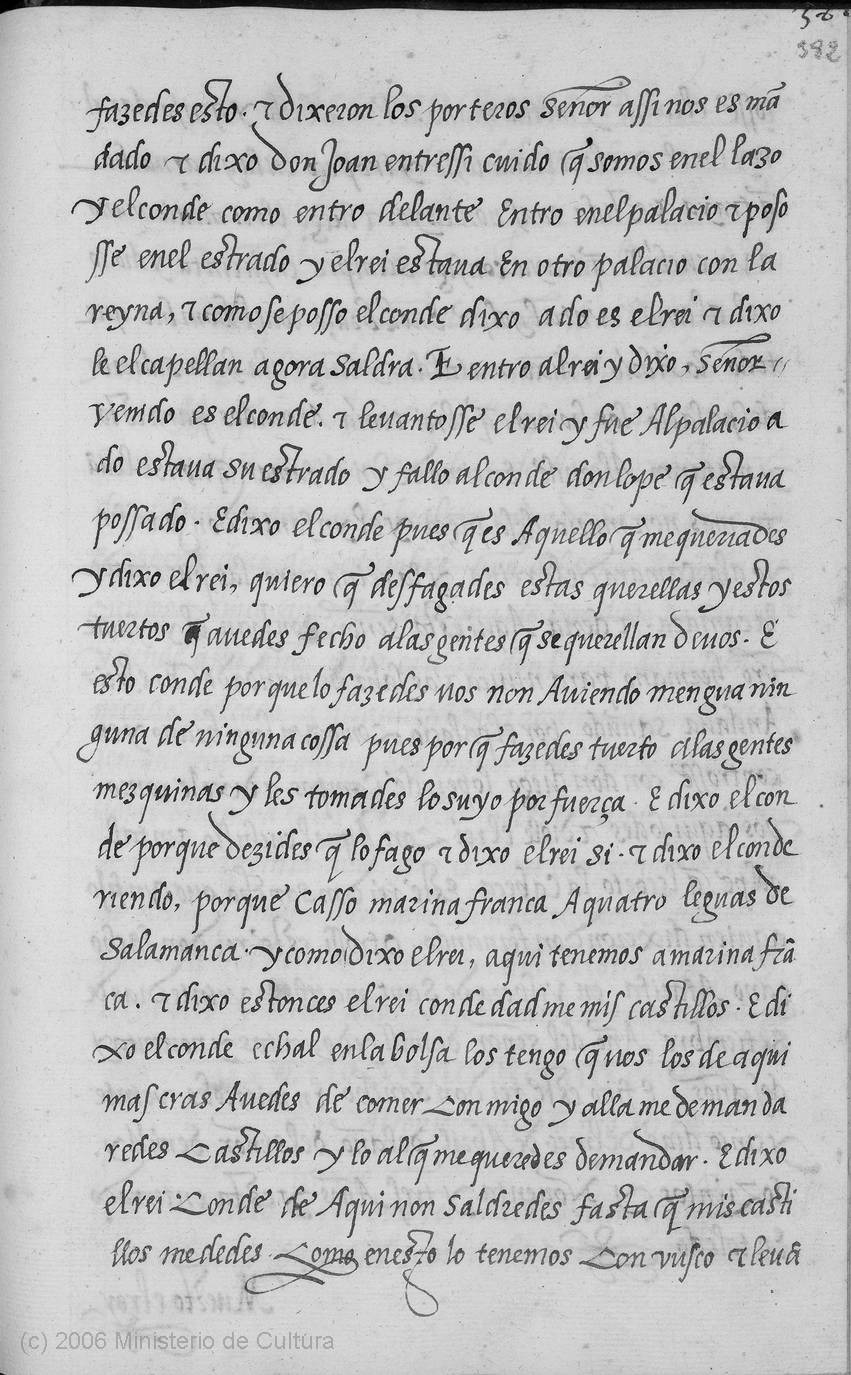 58.
382
fazedes esto. ⁊ dixeron los porteros señor assi nos es mã
dado ⁊ dixo don Joan entressi cuido q̃ somos enel lazo
y elconde como entro delante Entro enelpalacio ⁊ poso
sse enel estrado y elrei estaua En otro palacio con la
reyna, ⁊ comose posso elconde dixo ado es elrei ⁊ dixo
le elcapellan agora saldra. E entro alrei y dixo, señor
venido es elconde. ⁊ leuantosse elrei y fue Alpalacio a
do estaua su estrado y fallo alconde donlope q̃ estaua
possado. Edixo elconde pues q̃ es Aquello q̃ mequeriades
ydixo elrei, quiero q̃ desfagades estas querellas yestos
tuertos q̃ auedes fecho alasgentes q̃ se querellan deuos. E
esto conde porquelo fazedes uos non Auiendo mengua nin
guna de ninguna cossa pues por q̃ fazedes tuerto alasgentes
mezquinas y les tomades lo suyo por fuerça. E dixo elcon
de porque dezides q̃ lo fago ⁊ dixo elrei si. ⁊ dixo elconde
riendo, porque Casso marina franca Aquatro leguas de
Salamanca. ycomo dixo elrei, aqui tenemos amarina frã
ca. ⁊ dixo estonces elrei conde dadme mis castillos. Edi
xo elconde echal enla bolsa los tengo q̃ uos los de aqui
mas cras Auedes de comer Conmigo y alla me demanda
redes Castillos y lo al q̃ me queredes demandar. Edixo
elrei Conde de Aqui non Saldredes fasta q̃ mis casti
llos me dedes. Como enesto lo tenemos Con vusco ⁊ leuã
(c) 2006 Ministerio de Cultura